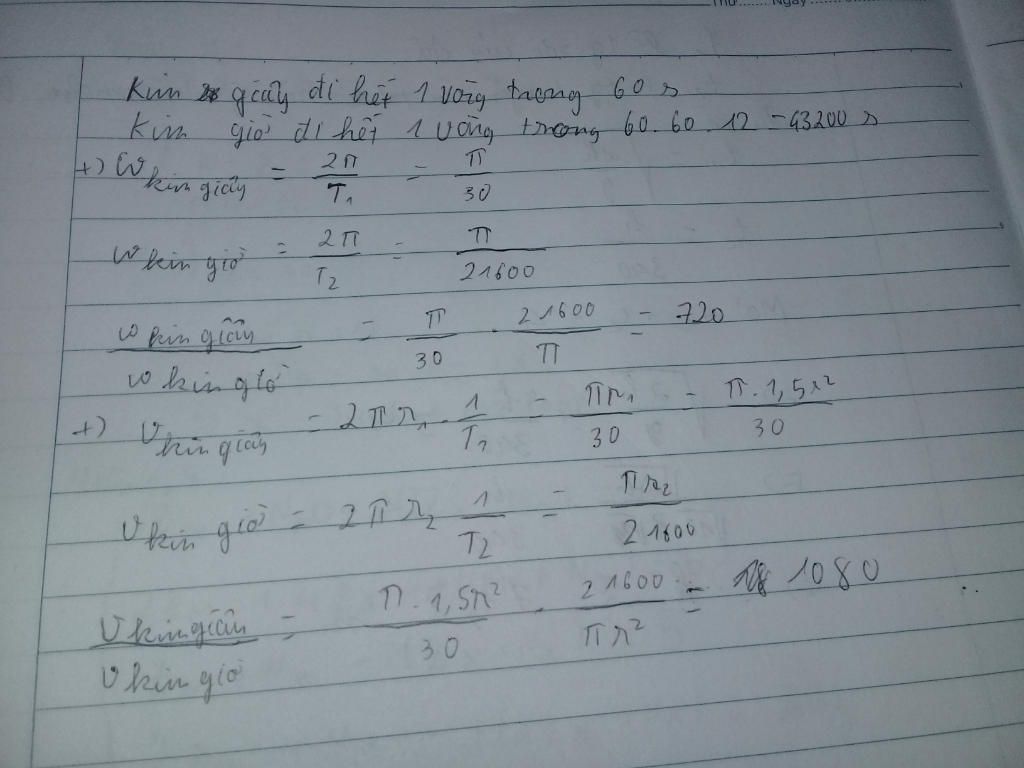 Thứ....... Ngày.......
Kim giây đi hết 1 vòng trong 60 s
Kim giờ đi hết 1 vòng trong 60.60.12 = 43200 s
+) ω kim giây = 2π/T₁ = π/30
ω kim giờ = 2π/T₂ = π/21600
ω kim giây / ω kim giờ = π/30 . 21600/π = 720
+) v kim giây = 2πr₁ . 1/T₁ = πr₁/30 = π.1,5r²/30
v kim giờ = 2πr₂ 1/T₂ = πr₂/21600
v kim giây / v kim giờ = π.1,5r²/30 . 21600/πr² = 1080